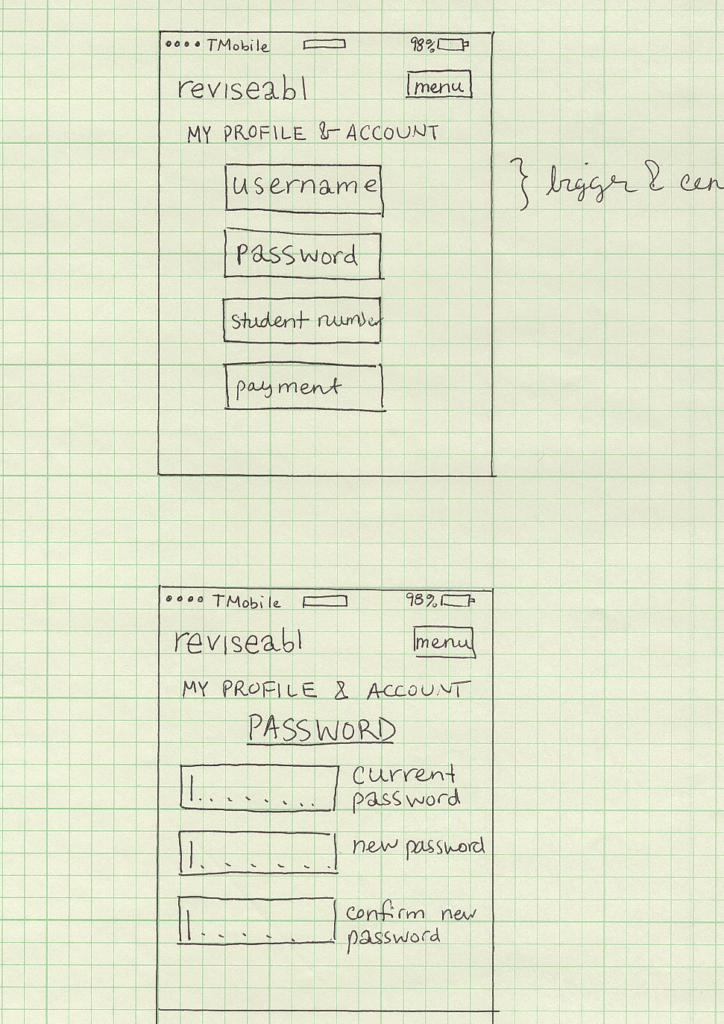 TMobile 98%
reviseabl menu
MY PROFILE & ACCOUNT
username
} bigger & cen
password
student number
payment
TMobile 98%
reviseabl menu
MY PROFILE & ACCOUNT
PASSWORD
current
password
new password
confirm new
password